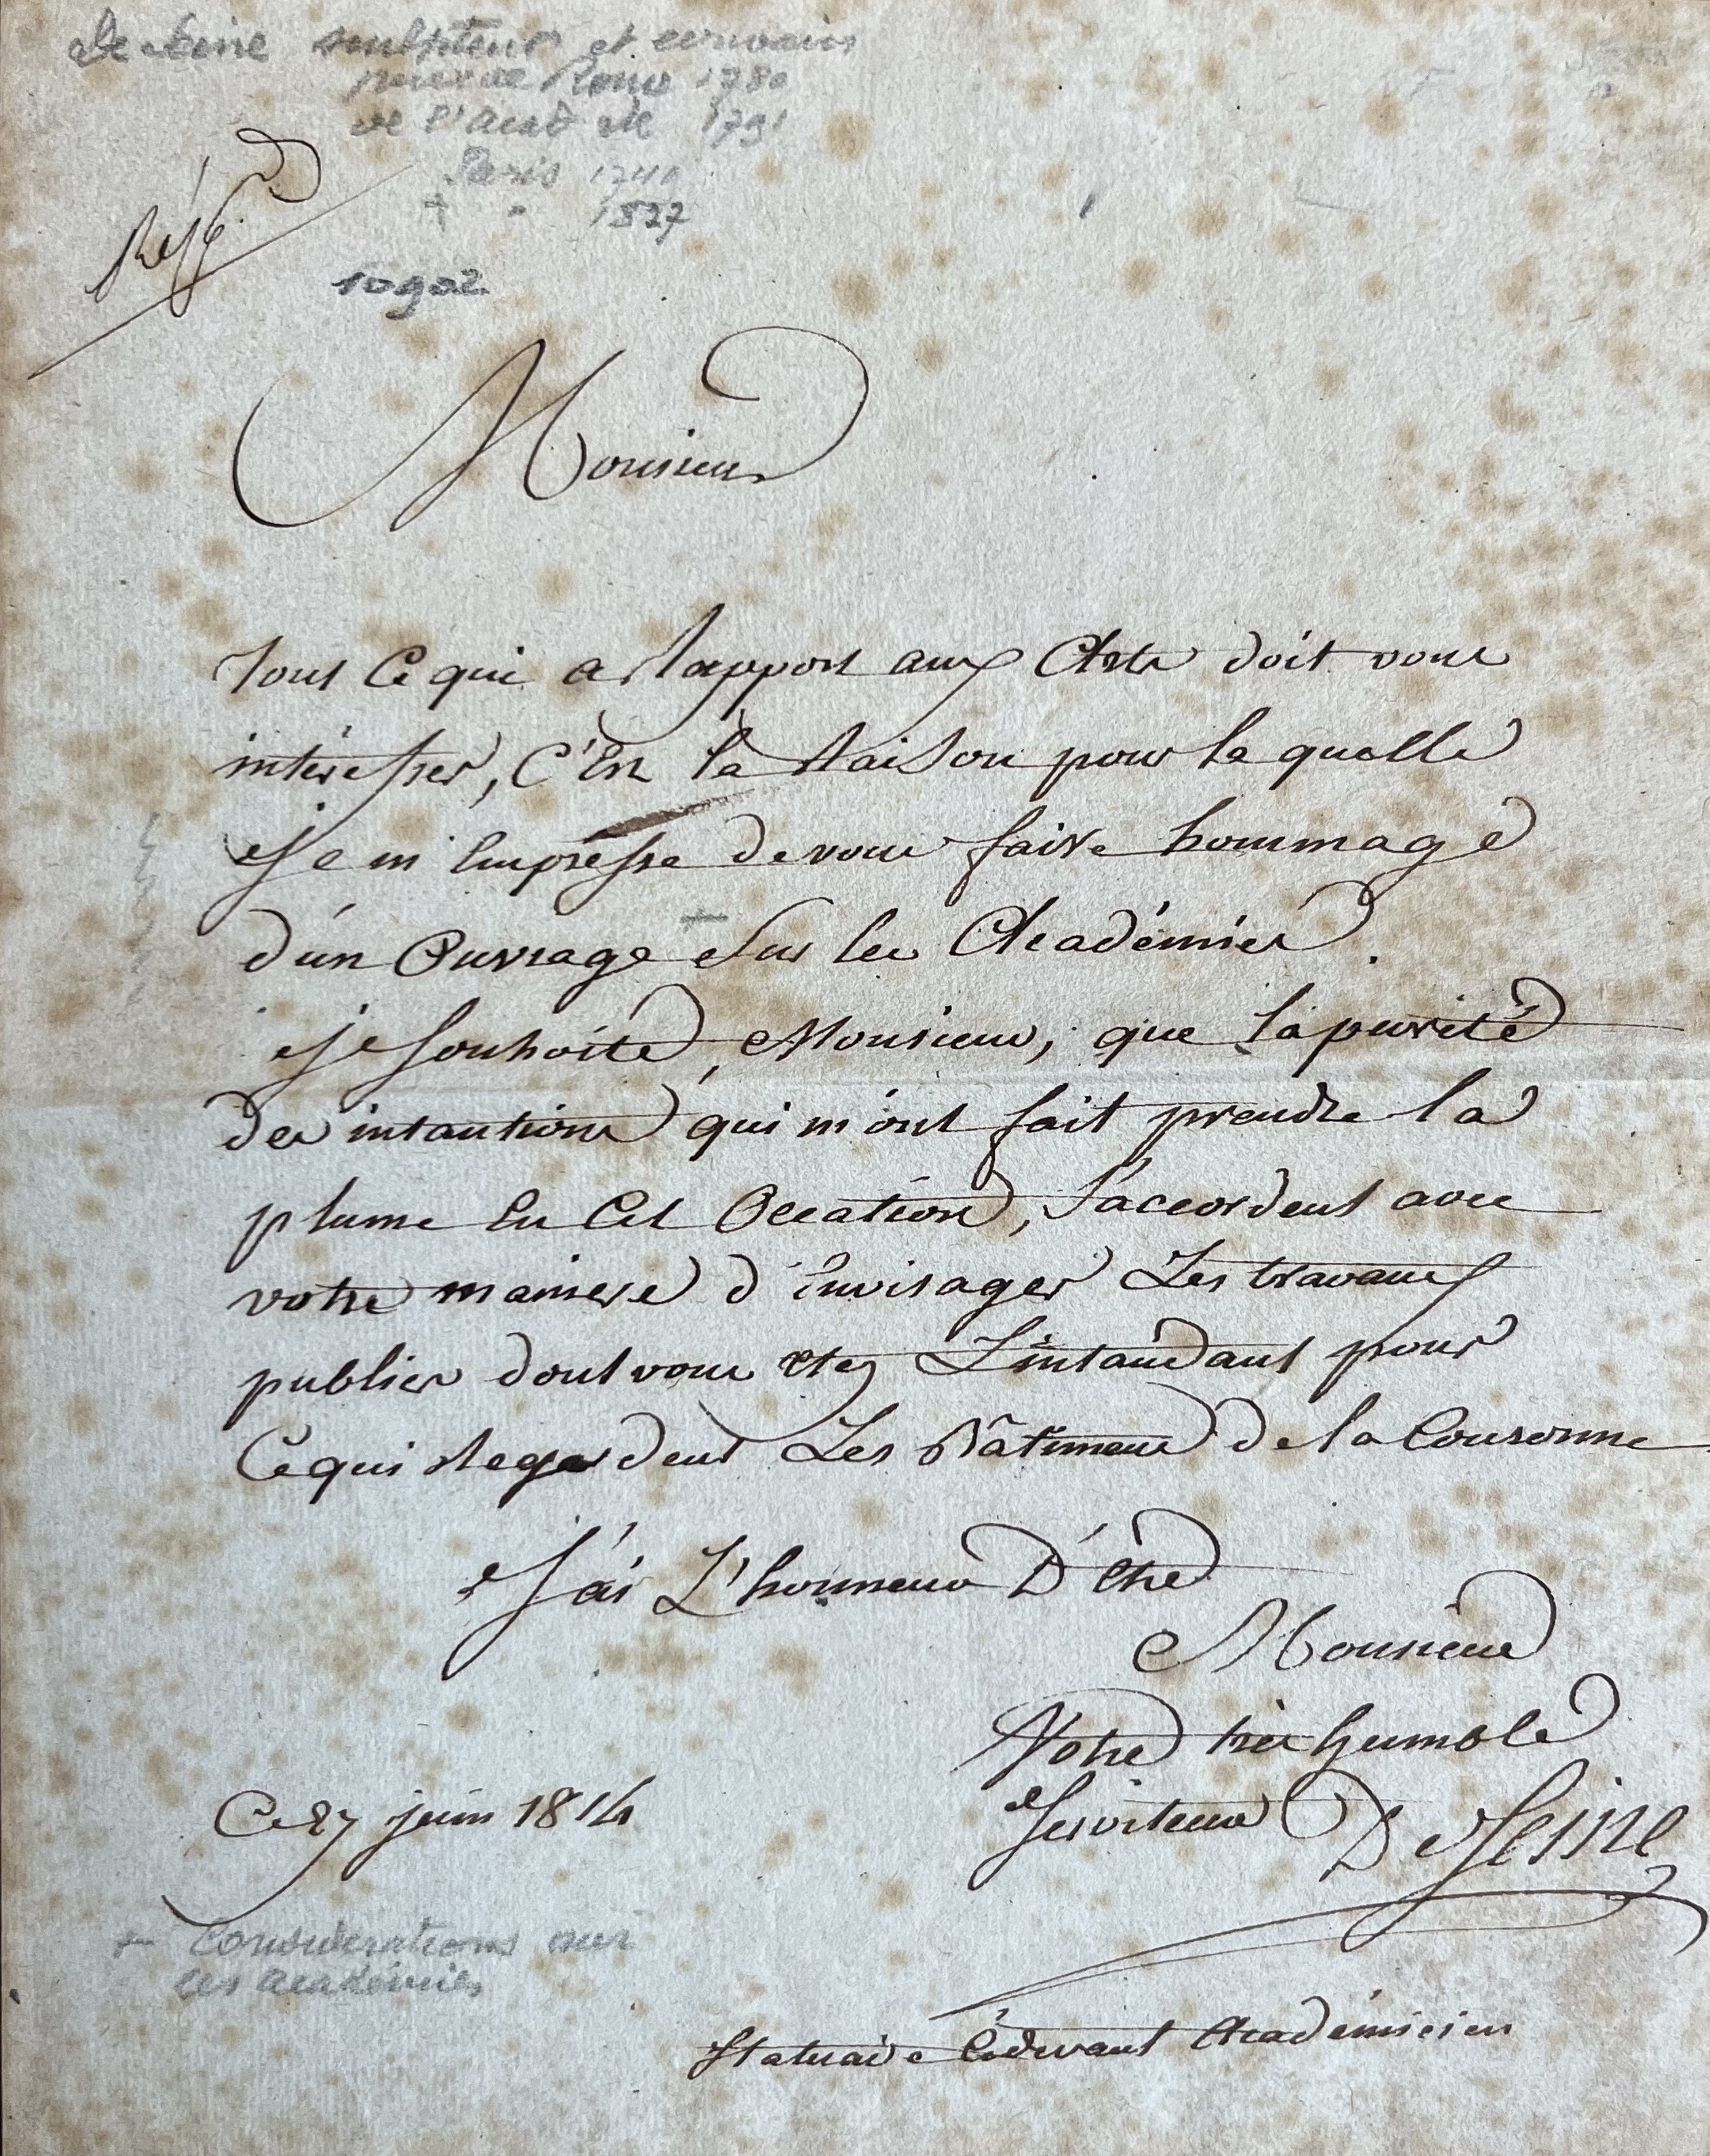 De Seine sculpteur et ecrivain
prix de Rome 1780
de l'Acad de 1791
Paris 1740
† " 1827
Rép.
10902
Monsieur
Tout Ce qui a Rapport aux Arts doit vous
intéresser, C'Est la Raison pour la quelle
Je m'Empresse de vous faire hommage
d'un Ouvrage Sur les Académies.
Je Souhaite, Monsieur, que la purité
des intantions qui m'ont fait prendre la
plume En Cet Occation, S'accordent avec
votre maniere d'Envisager Les travaux
publics dont vous Etes L'intandant pour
Ce qui Regardent Les Bâtimens de la Couronne
J'ai L'honneur D'Etre
Monsieur
Votre très humble
Serviteur DeSeine
Ce 27 juin 1814
+ Considerations sur
les académies
Statuaire Cidevant Académicien